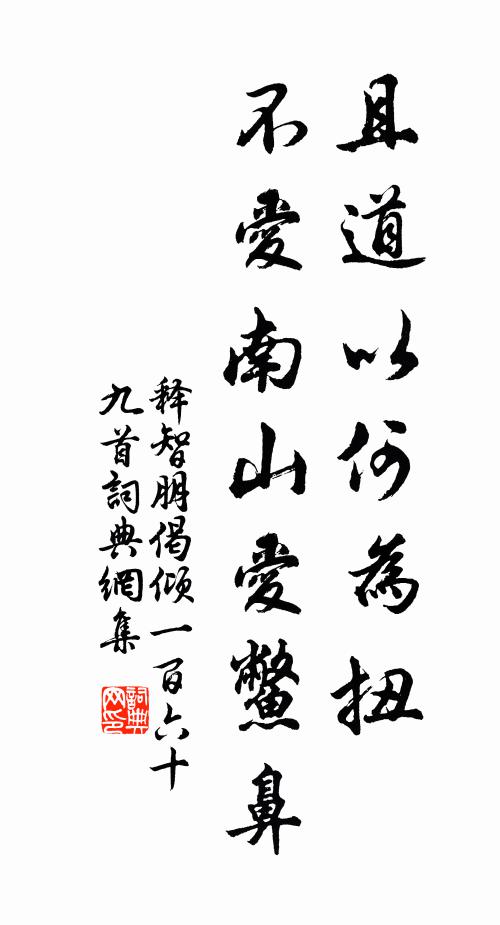 且道以何為扭
不愛南山愛鱉鼻
释智朋偈傾一百六十
九首詞典網集
詞典网印